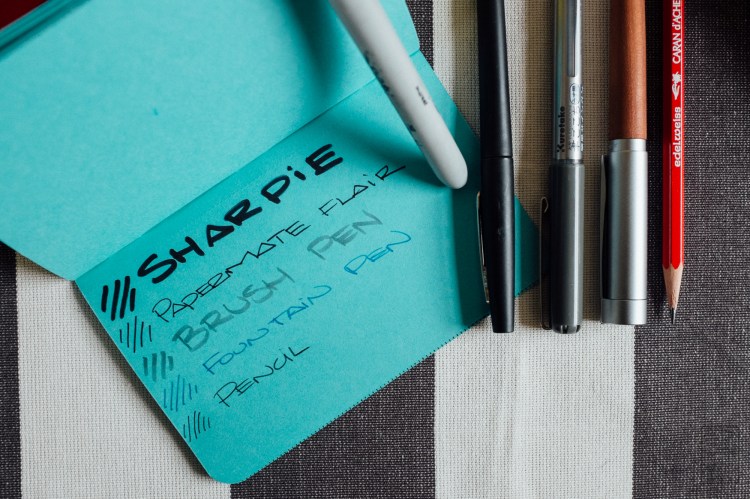 SHARPIE
PAPERMATE FLAIR
BRUSH PEN
FOUNTAIN PEN
PENCIL
Kuretake
edelweiss CARAN d'ACHE